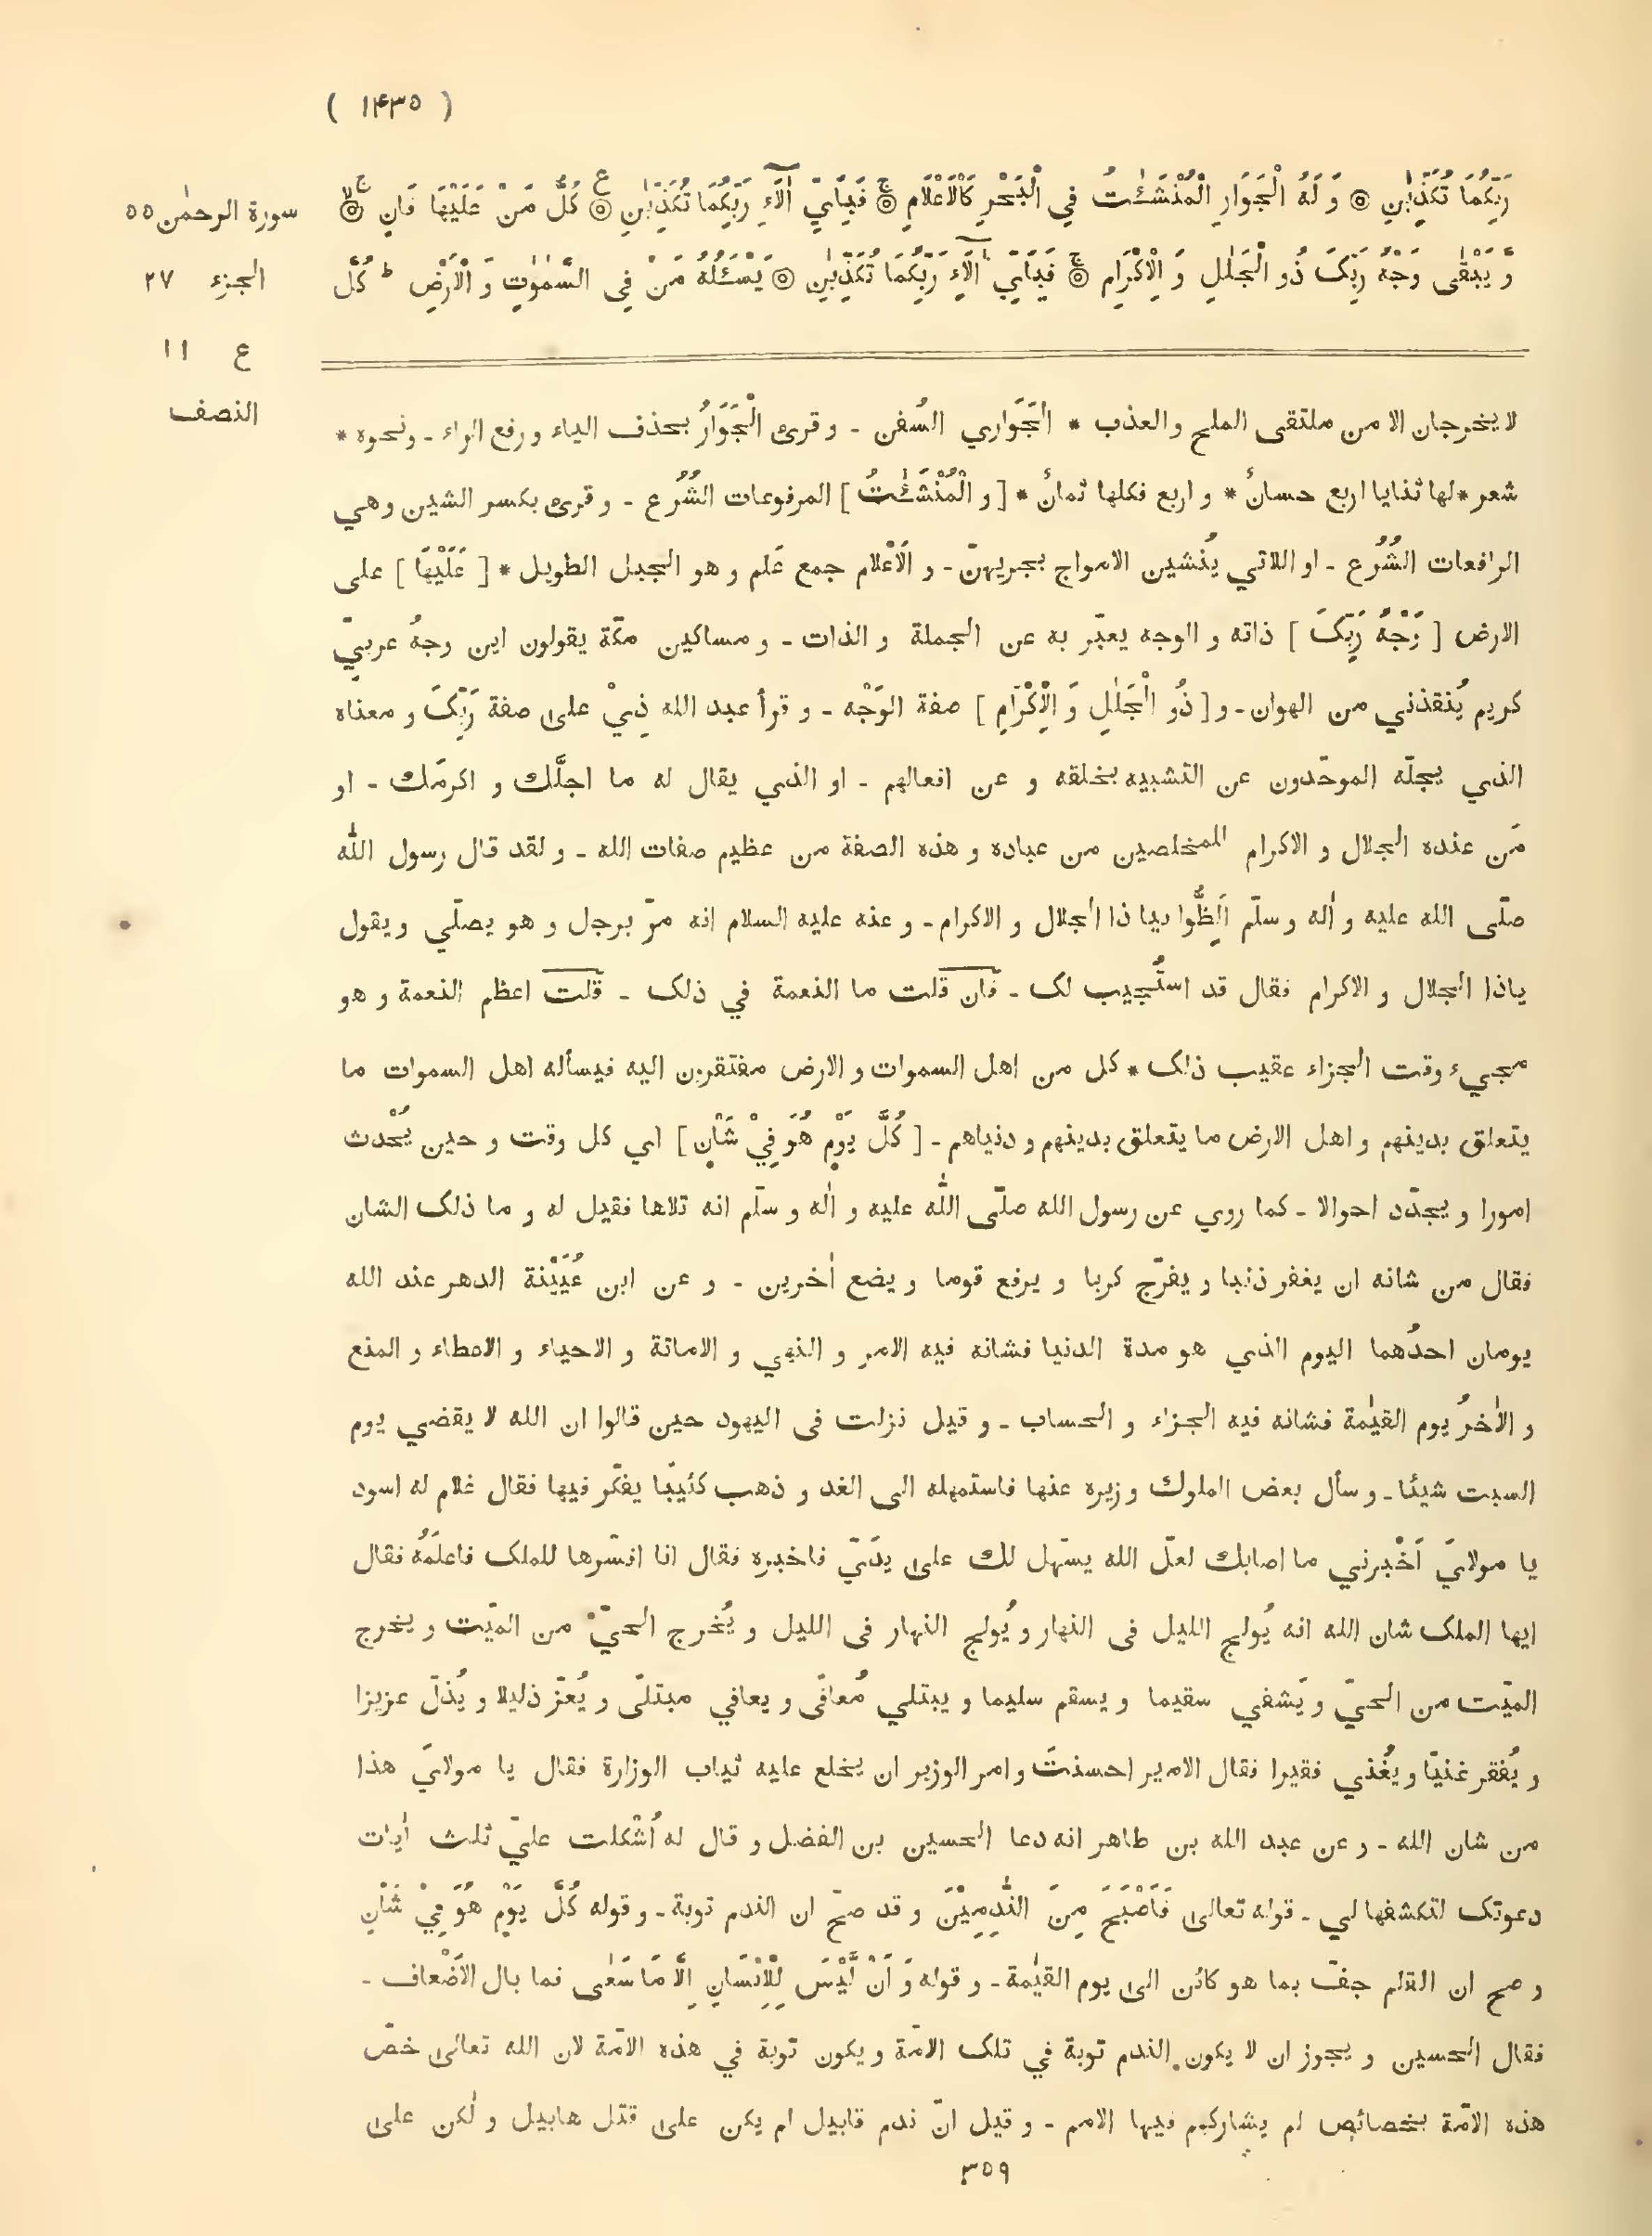 ( ١٤٣٥ )
رَبِّكُمَا تُكَذِّبٰنِ ۞ وَ لَهُ الْجَوَارِ الْمُنْشَـٰٔتُ فِي الْبَحْرِ كَالْاَعْلَامِ ۞ فَبِاَيِّ اٰلَآءِ رَبِّكُمَا تُكَذِّبٰنِ ۞ كُلُّ مَنْ عَلَيْهَا فَانٍ ۞
وَّ يَبْقٰى وَجْهُ رَبِّكَ ذُو الْجَلٰلِ وَ الْاِكْرَامِ ۞ فَبِاَيِّ اٰلَآءِ رَبِّكُمَا تُكَذِّبٰنِ ۞ يَسْـَٔلُهُ مَنْ فِي السَّمٰوٰتِ وَ الْاَرْضِ ط كُلَّ
سورة الرحمٰن ٥٥
الجزء ٢٧
ع ١١
النصف
لا يخرجان الا من ملتقى الملح و العذب * الْجَوَاري السُفن - و قرئ الْجَوَارُ بحذف الياء و رفع الراء - و نحوه *
شعر * لها ثنايا اربع حسانُ * و اربع فكلها ثمانُ * [ و الْمُنْشَـٰٔتُ ] المرفوعات الشُرُع - و قرئ بكسر الشين و هي
الرافعات الشُرُع - او اللاتي يُنشين الامواج بجريهنّ - و الْاَعْلام جمع عَلم و هو الجبل الطويل * [ عَلَيْهَا ] على
الارض [ وَجْهُ رَبِّكَ ] ذاته و الوجه يعبّر به عن الجملة و الذات - و مساكين مكّة يقولون اين وجهُ عربيّ
كريم يُنقذني من الهوان - و [ ذُو الْجَلٰلِ وَ الْاِكْرَامِ ] صفة الوَجْه - و قرأ عبد الله ذِيْ على صفة رَبِّكَ و معناه
الذي يجلّه الموحّدون عن التشبيه بخلقه و عن افعالهم - او الذي يقال له ما اجلَّك و اكرمَك - او
مَن عنده الجلال و الاكرام للمخلصين من عباده و هذه الصفة من عظيم صفات الله - و لقد قال رسول الله
صلّى الله عليه و اٰله و سلّم اَلِظُّوا بيا ذا الجلال و الاكرام - و عنه عليه السلام انه مرّ برجل و هو يصلّي و يقول
ياذا الجلال و الاكرام فقال قد استُجيب لك - فان قلت ما النعمة في ذلك - قلت اعظم النعمة و هو
مجيء وقت الجزاء عقيب ذلك * كل من اهل السموات و الارض مفتقرين اليه فيسأله اهل السموات ما
يتعلق بدينهم و اهل الارض ما يتعلق بدينهم و دنياهم - [ كُلَّ يَوْمٍ هُوَ فِيْ شَاْنٍ ] اي كل وقت و حين يُحْدث
امورا و يجدّد احوالا - كما روي عن رسول الله صلّى الله عليه و اٰله و سلّم انه تلاها فقيل له و ما ذلك الشان
فقال من شانه ان يغفر ذنبا و يفرّج كربا و يرفع قوما و يضع اٰخرين - و عن ابن عُيَيْنة الدهر عند الله
يومان احدُهما اليوم الذي هو مدة الدنيا فشانه فيه الامر و النهي و الاماتة و الاحياء و الاعطاء و المنع
و الاٰخرُ يوم القيٰمة فشانه فيه الجزاء و الحساب - و قيل نزلت فى اليهود حين قالوا ان الله لا يقضي يوم
السبت شيئا - و سأل بعض الملوك وزيره عنها فاستمهله الى الغد و ذهب كئيبًا يفكّر فيها فقال غلام له اسود
يا مولايَ اَخْبِرني ما اصابك لعلّ الله يسّهل لك على يدَيّ فاخبره فقال انا افسّرها للملك فاعلَمَهُ فقال
ايها الملك شان الله انه يُولج الليل فى النهار و يُولج النهار فى الليل و يُخرج الحيّ من الميّت و يخرج
الميّت من الحيّ و يَشفي سقيما و يسقم سليما و يبتلي مُعافًى و يعافي مبتلًى و يُعزّ ذليلا و يُذلّ عزيزا
و يُفقر غنيّا و يُغني فقيرا فقال الامير احسنتَ و امر الوزير ان يخلع عليه ثياب الوزارة فقال يا مولايَ هذا
من شان الله - و عن عبد الله بن طاهر انه دعا الحسين بن الفضل و قال له اُشْكلت عليّ ثلث اٰيات
دعوتك لتكشفها لي - قوله تعالى فَاَصْبَحَ مِنَ النّٰدِمِيْنَ و قد صحّ ان الندم توبة - و قوله كُلَّ يَوْمٍ هُوَ فِيْ شَاْنٍ
و صح ان القلم جفّ بما هو كائن الى يوم القيٰمة - و قوله وَ اَنْ لَّيْسَ لِلْاِنْسَانِ اِلَّا مَا سَعٰى فما بال الاَضْعاف -
فقال الحسين و يجوز ان لا يكون الندم توبة في تلك الامّة و يكون توبة في هذه الامّة لان الله تعالى خصّ
هذه الامّة بخصائص لم يشاركهم فيها الامم - و قيل انّ ندم قابيل لم يكن على قتل هابيل و لٰكن على
٣٥٩